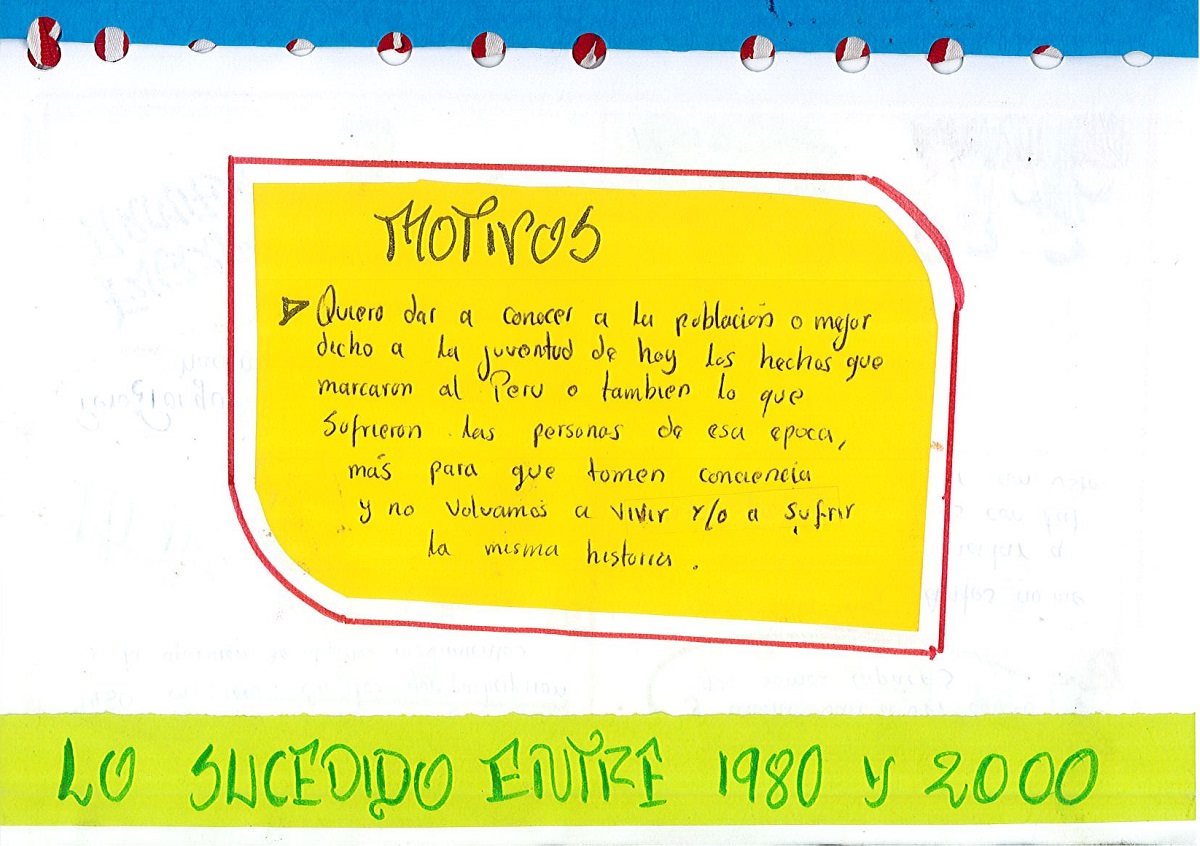 MOTIVOS
Quiero dar a conocer a la población o mejor
dicho a la juventud de hoy los hechos que
marcaron al Peru o tambien lo que
Sufrieron las personas de esa epoca,
más para que tomen conciencia
y no volvamos a vivir y/o a sufrir
la misma historia.
LO SUCEDIDO ENTRE 1980 y 2000